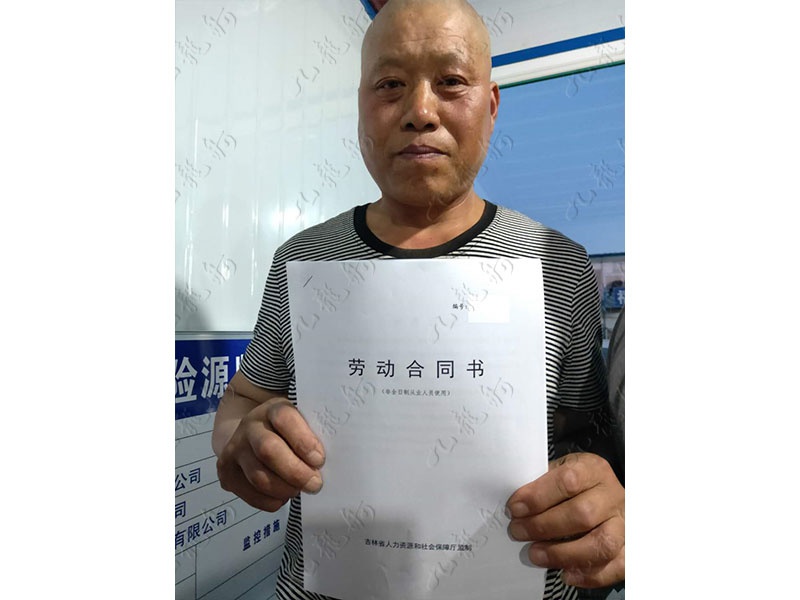 编号：
劳动合同书
（非全日制从业人员使用）
吉林省人力资源和社会保障厅监制
险源
公司
司
有限公司
监控措施